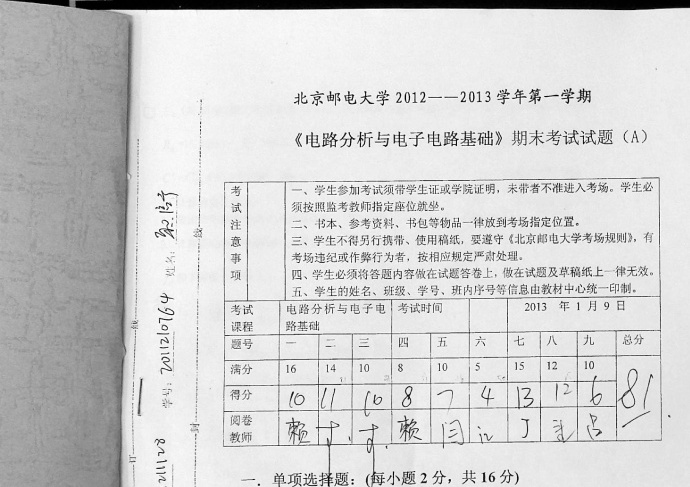 北京邮电大学2012——2013学年第一学期
《电路分析与电子电路基础》期末考试试题（A）
考试注意事项
一、学生参加考试须带学生证或学院证明，未带者不准进入考场。学生必
须按照监考教师指定座位就坐。
二、书本、参考资料、书包等物品一律放到考场指定位置。
三、学生不得另行携带、使用稿纸，要遵守《北京邮电大学考场规则》，有
考场违纪或作弊行为者，按相应规定严肃处理。
四、学生必须将答题内容做在试题答卷上，做在试题及草稿纸上一律无效。
五、学生的姓名、班级、学号、班内序号等信息由教材中心统一印制。
考试课程 电路分析与电子电路基础 考试时间 2013 年 1 月 9 日
题号 一 二 三 四 五 六 七 八 九 总分
满分 16 14 10 8 10 5 15 12 10
得分 10 11 10 8 7 4 13 12 6 81
阅卷教师 赖 赖 闫 丁 吕
一．单项选择题：(每小题2分，共16分)
姓名：
学号：
线
封
订